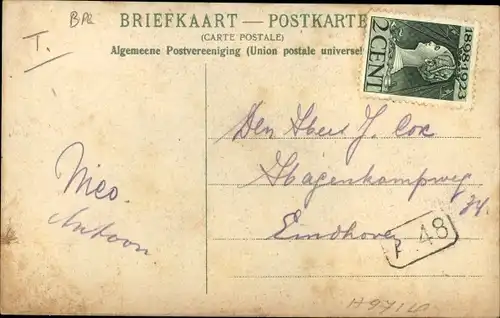 T.
BPR
BRIEFKAART — POSTKARTE
(CARTE POSTALE)
Algemeene Postvereeniging (Union postale universel
2 CENT
1898·1923
Den Heer J. Cox
Hagenkampweg
74.
Eindhoven
Nico.
Antoon
P 48